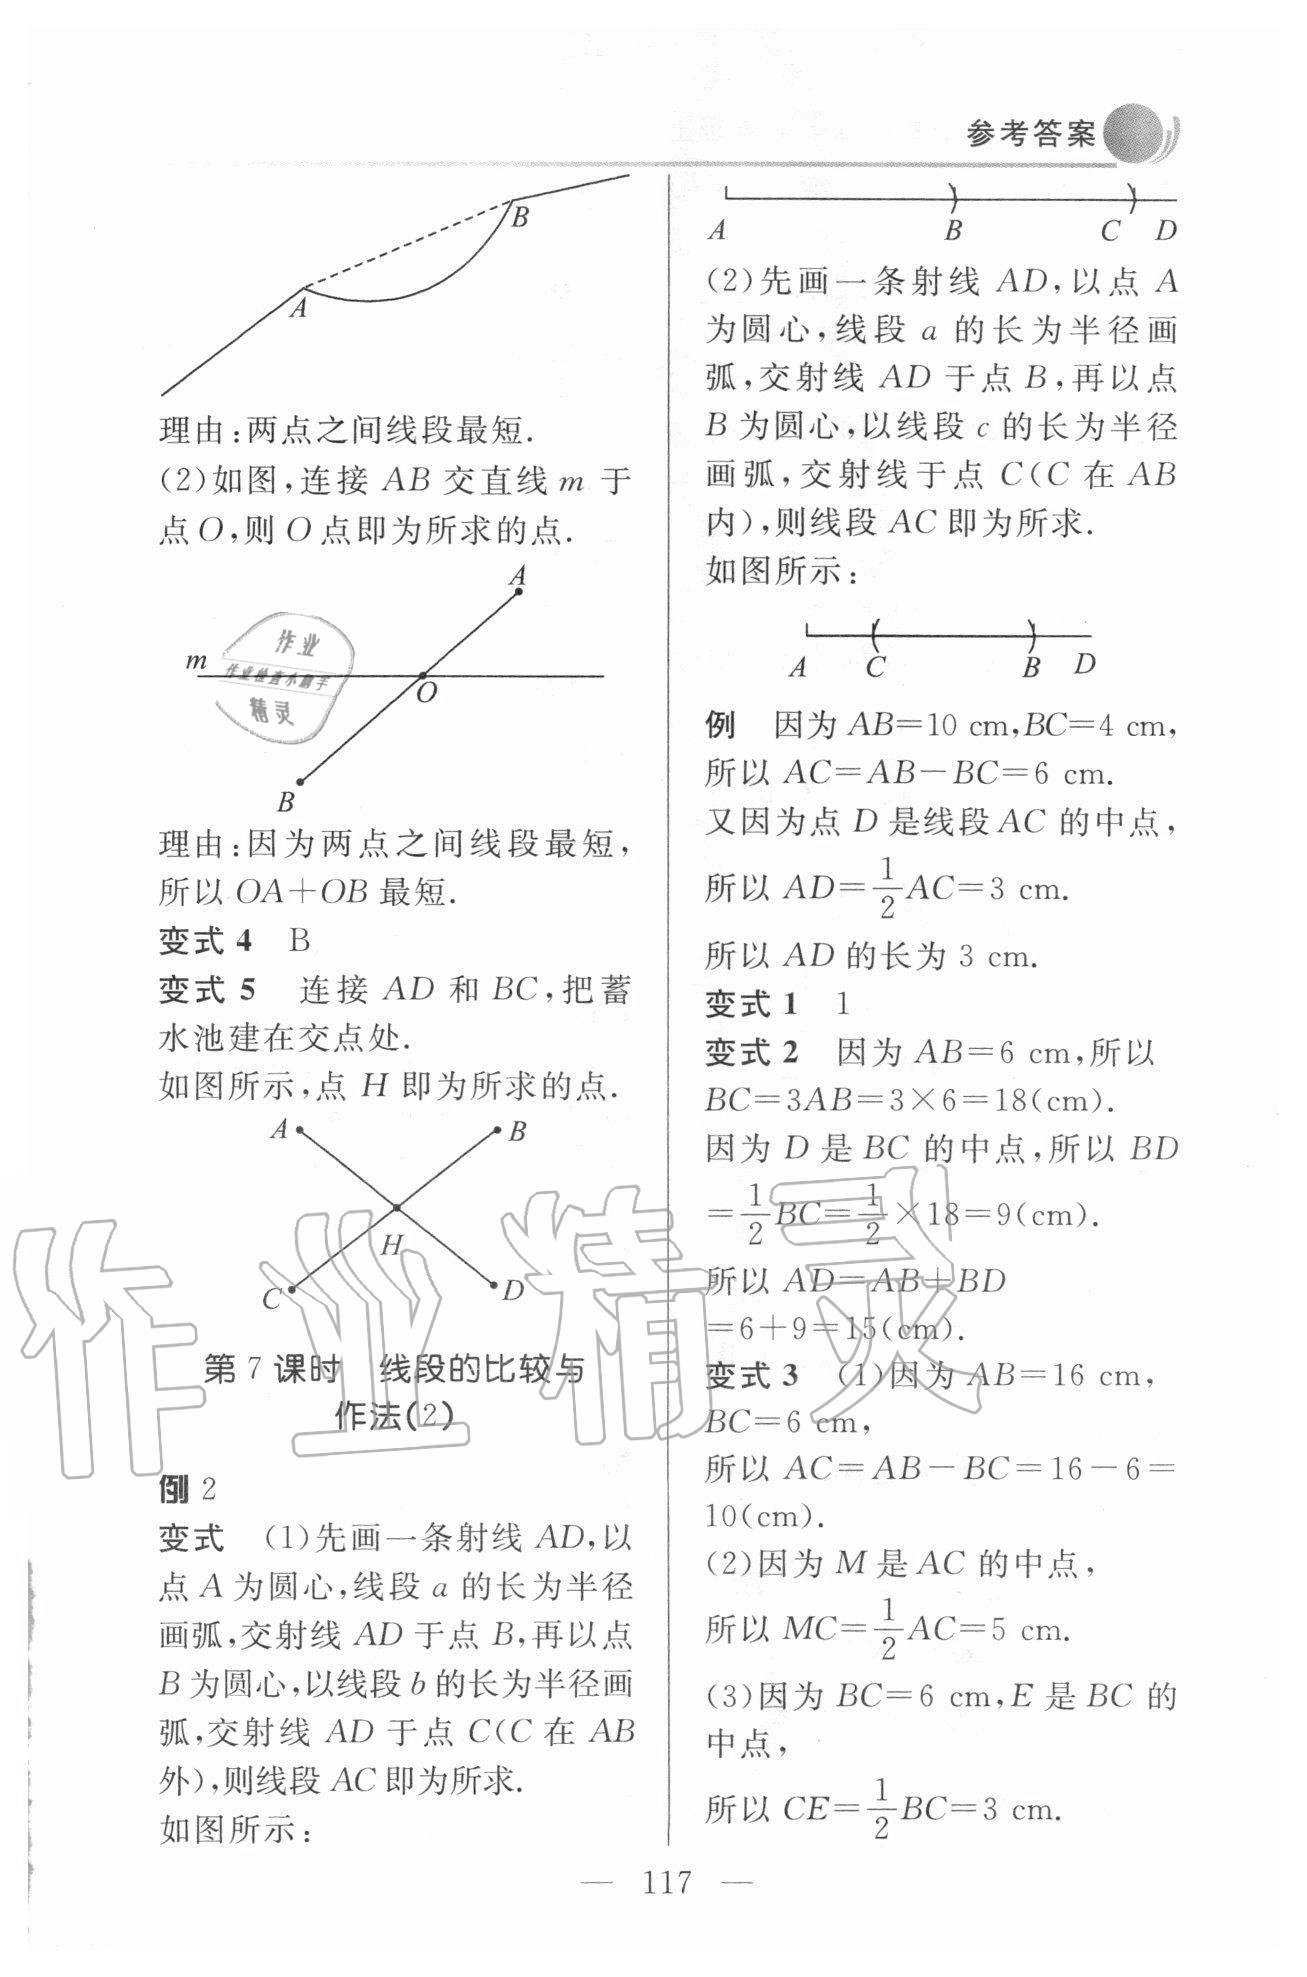 参考答案
B
A
理由:两点之间线段最短.
(2)如图,连接 AB 交直线 m 于
点O,则 O 点即为所求的点.
A
m
O
B
理由:因为两点之间线段最短,
所以 OA+OB 最短.
变式 4 B
变式 5 连接 AD 和 BC,把蓄
水池建在交点处.
如图所示,点 H 即为所求的点.
A B
H
C D
第 7 课时 线段的比较与
作法(2)
例 2
变式 (1)先画一条射线 AD,以
点 A 为圆心,线段 a 的长为半径
画弧,交射线 AD 于点 B,再以点
B 为圆心,以线段 b 的长为半径画
弧,交射线 AD 于点 C(C 在 AB
外),则线段 AC 即为所求.
如图所示:
A B C D
(2)先画一条射线 AD,以点 A
为圆心,线段 a 的长为半径画
弧,交射线 AD 于点 B,再以点
B 为圆心,以线段 c 的长为半径
画弧,交射线于点 C(C 在 AB
内),则线段 AC 即为所求.
如图所示:
A C B D
例 因为 AB=10 cm,BC=4 cm,
所以 AC=AB-BC=6 cm.
又因为点 D 是线段AC 的中点,
所以 AD=1/2AC=3 cm.
所以 AD 的长为 3 cm.
变式 1 1
变式 2 因为 AB=6 cm,所以
BC=3AB=3×6=18(cm).
因为 D 是 BC 的中点,所以 BD
=1/2BC=1/2×18=9(cm).
所以 AD=AB+BD
=6+9=15(cm).
变式 3 (1)因为 AB=16 cm,
BC=6 cm,
所以 AC=AB-BC=16-6=
10(cm).
(2)因为 M 是 AC 的中点,
所以 MC=1/2AC=5 cm.
(3)因为 BC=6 cm,E 是 BC 的
中点,
所以 CE=1/2BC=3 cm.
— 117 —
作业
作业检查小帮手
精灵
作业精灵